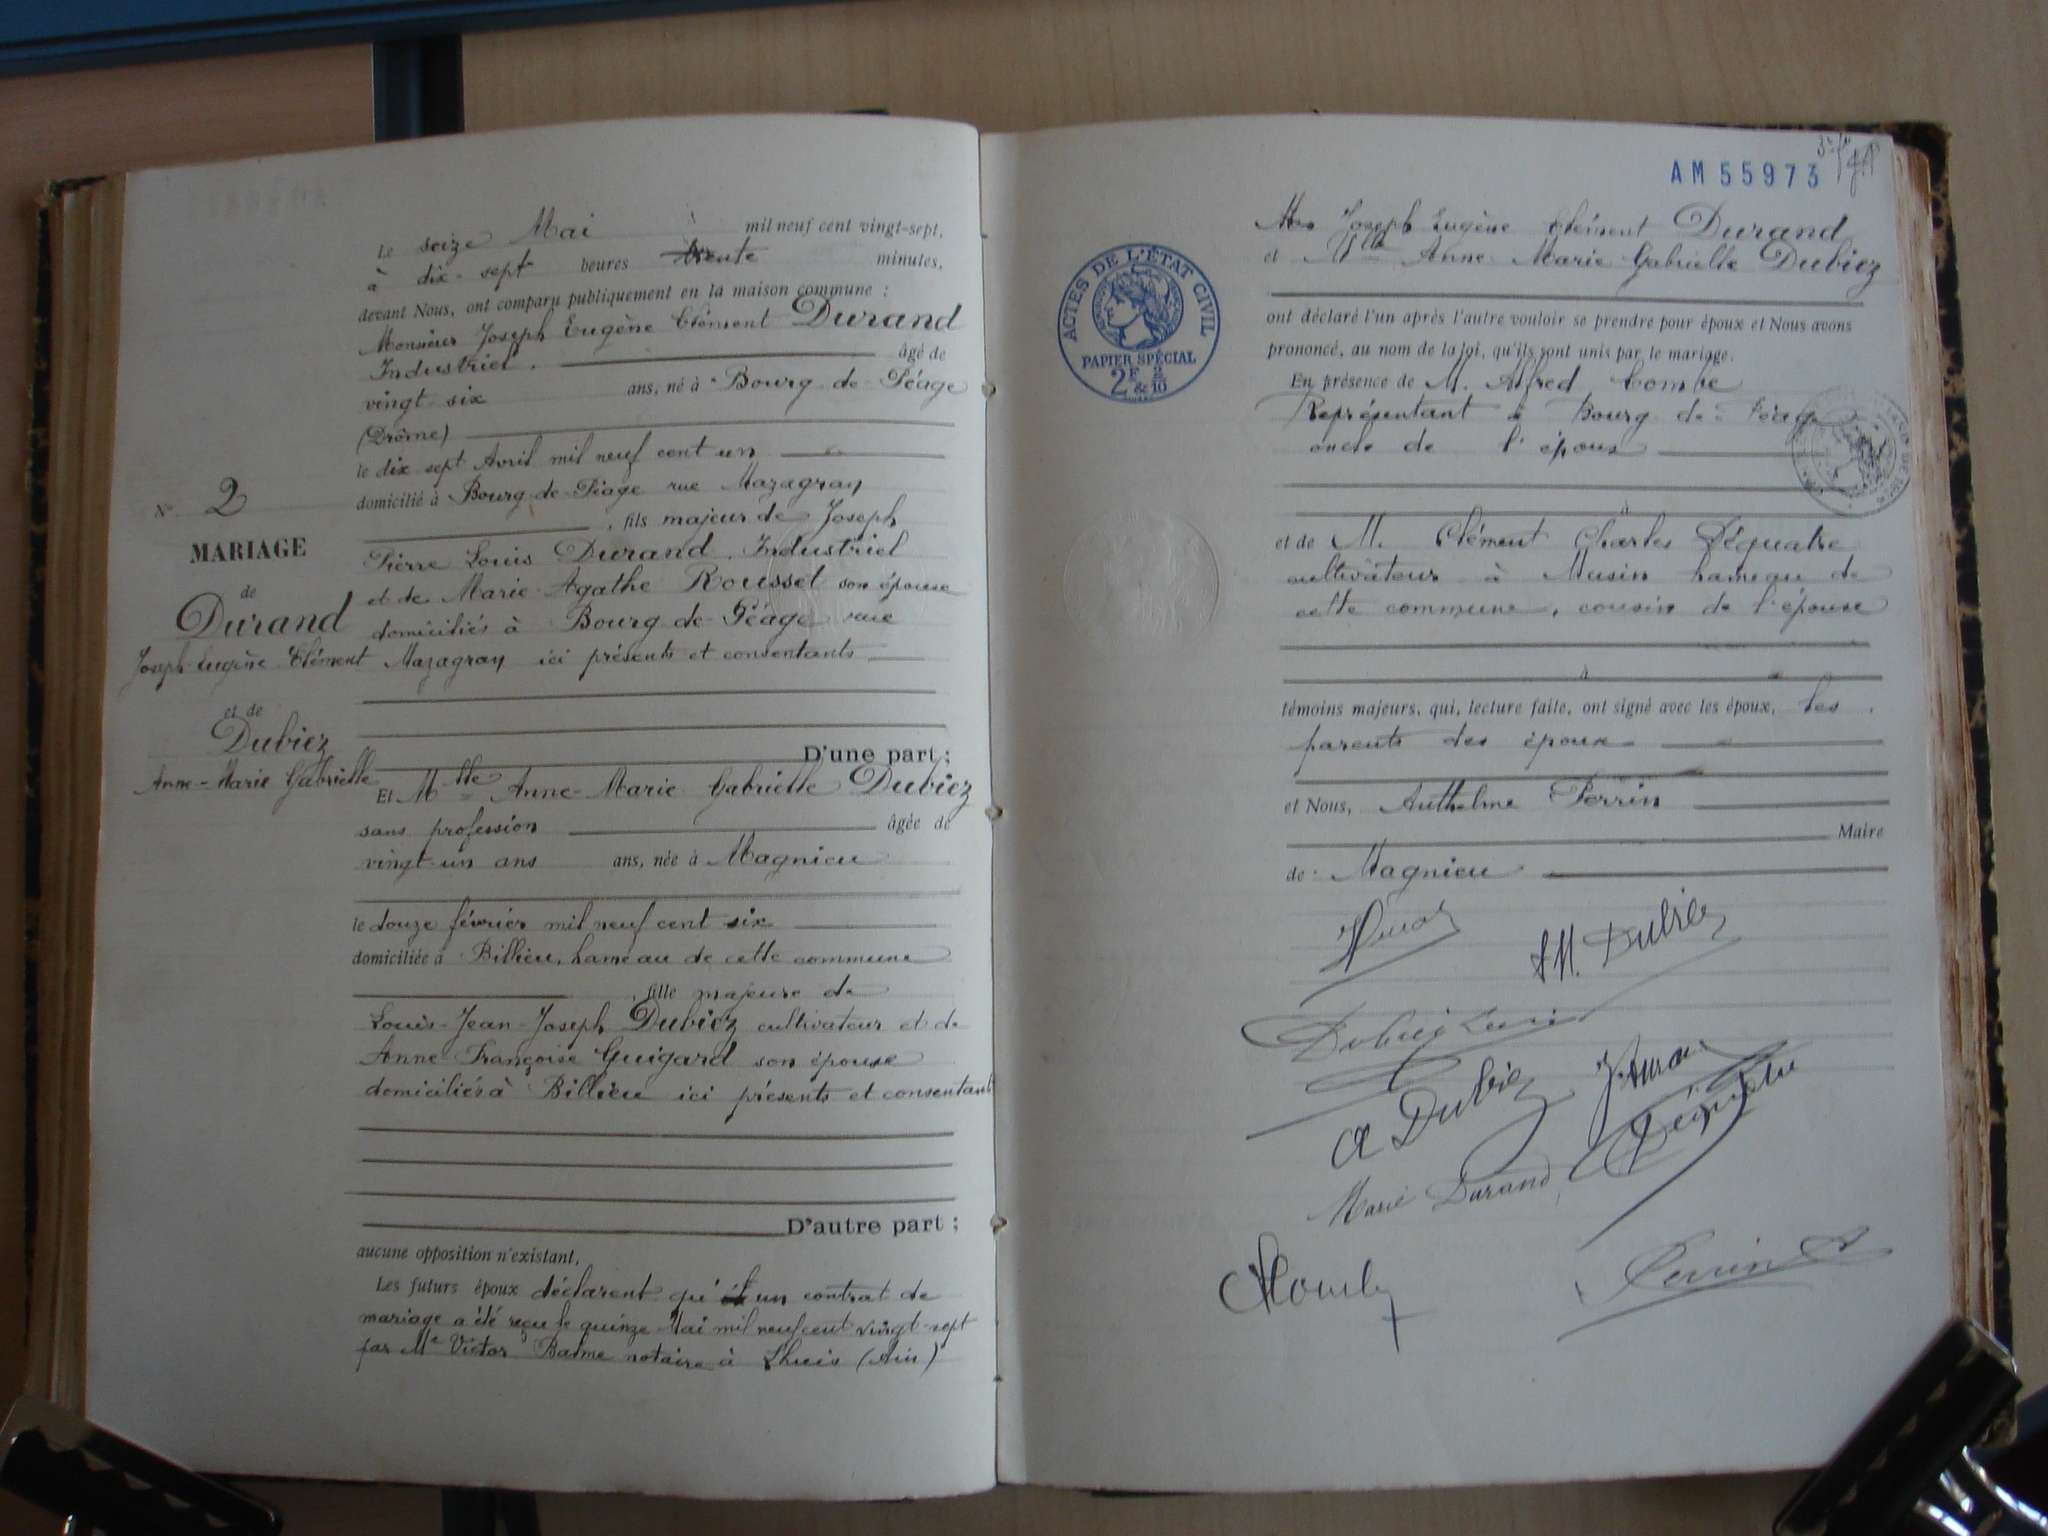 Le seize Mai mil neuf cent vingt-sept,
à dix-sept heures trente minutes,
devant Nous, ont comparu publiquement en la maison commune :
Monsieur Joseph Eugène Clément Durand
Industriel. âgé de
vingt six ans, né à Bourg de Péage
(Drôme)
le dix sept Avril mil neuf cent un
domicilié à Bourg-de-Péage rue Mazagran
, fils majeur de Joseph
Pierre Louis Durand, Industriel
et de Marie Agathe Rousset son épouse
domiciliés à Bourg de Péage rue
Mazagran ici présents et consentants
D'une part ;
Et Mlle Anne-Marie Gabrielle Dubiez
sans profession âgée de
vingt-un ans ans, née à Magnieu
le douze février mil neuf cent six
domiciliée à Billieu, hameau de cette commune
, fille majeure de
Louis-Jean-Joseph Dubiez cultivateur et de
Anne Françoise Guigard son épouse
domiciliés à Billieu ici présents et consentant
D'autre part ;
aucune opposition n'existant,
Les futurs époux déclarent qu' un contrat de
mariage a été reçu le quinze Mai mil neuf cent vingt-sept
par Me Victor Balme notaire à Lhuis (Ain)
N° 2
MARIAGE
de
Durand
Joseph Eugène Clément
et de
Dubiez
Anne-Marie Gabrielle
AM 55973
Joseph Eugène Clément Durand
et Mlle Anne Marie Gabrielle Dubiez
ont déclaré l'un après l'autre vouloir se prendre pour époux et Nous avons
prononcé, au nom de la loi, qu'ils sont unis par le mariage.
En présence de M. Alfred Combe
Représentant à Bourg de Péage
oncle de l'époux
et de M. Clément Charles Déquatre
cultivateur à Musin hameau de
cette commune, cousin de l'épouse
témoins majeurs, qui, lecture faite, ont signé avec les époux, les
parents des époux
et Nous, Anthelme Perrin
Maire
de Magnieu
ACTES DE L'ÉTAT CIVIL
PAPIER SPÉCIAL
2F & 2/10
AM. Dubiez
Dubiez Louis
A Dubiez
Marie Durand
Perrin A